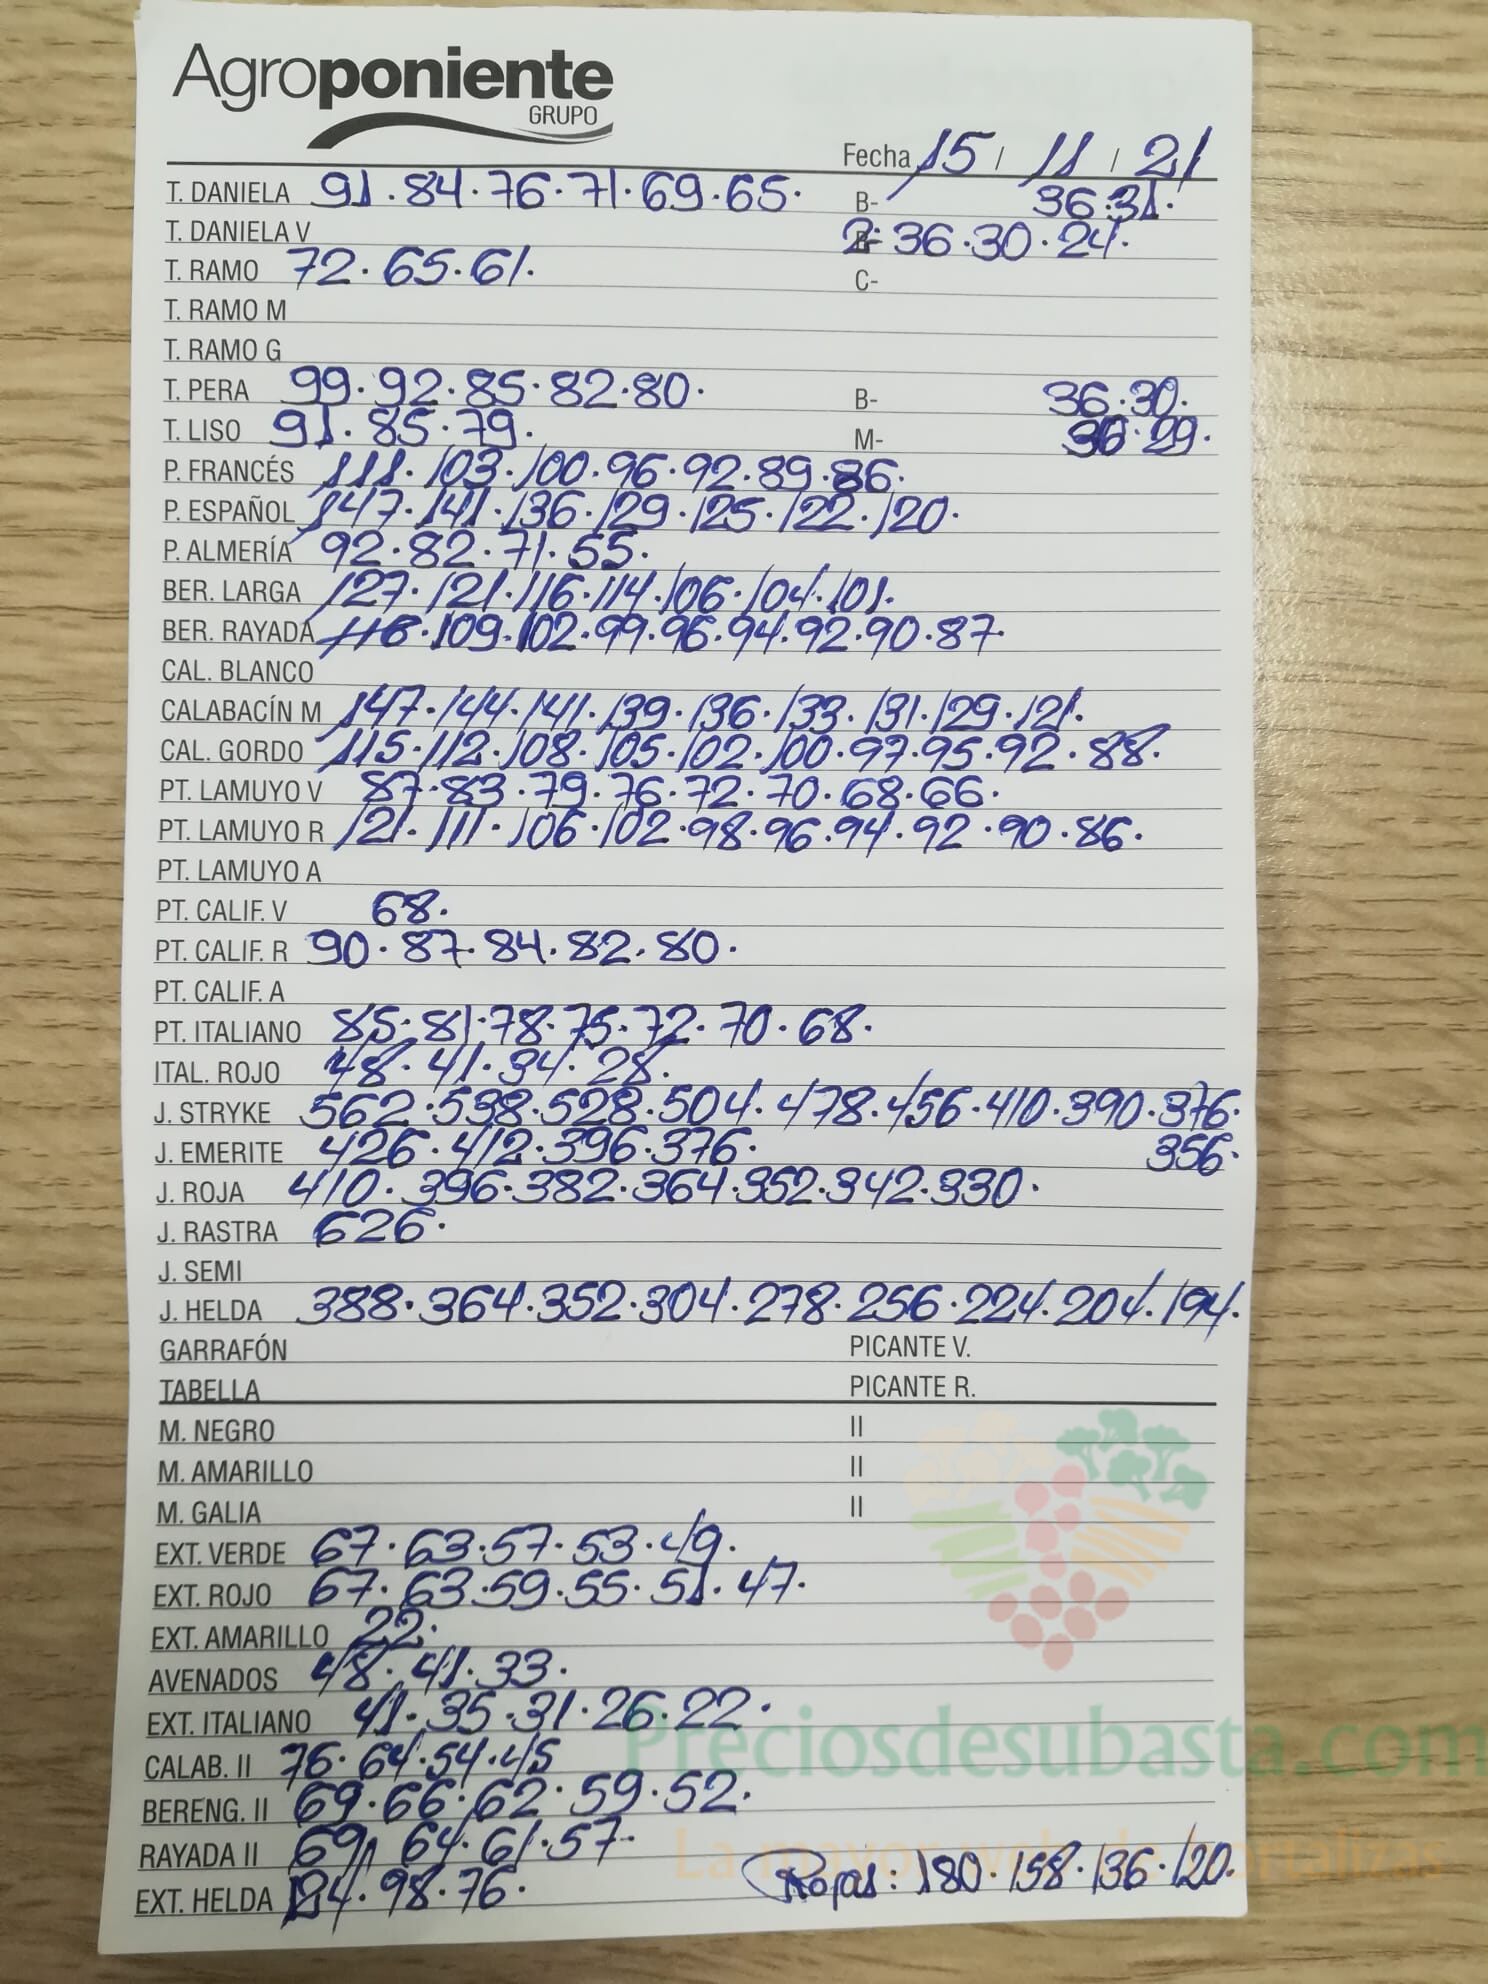 Agroponiente
GRUPO
Fecha 15 / 11 / 21
T. DANIELA 91.84.76.71.69.65. B- 36.31.
T. DANIELA V 2: 36.30.24.
T. RAMO 72.65.61. C-
T. RAMO M
T. RAMO G
T. PERA 99.92.85.82.80. B- 36.30.
T. LISO 91.85.79. M- 36.29.
P. FRANCÉS 111.103.100.96.92.89.86.
P. ESPAÑOL 147.141.136.129.125.122.120.
P. ALMERÍA 92.82.71.55.
BER. LARGA 127.121.116.114.106.104.101.
BER. RAYADA 116.109.102.99.96.94.92.90.87.
CAL. BLANCO
CALABACÍN M 147.144.141.139.136.133.131.129.121.
CAL. GORDO 115.112.108.105.102.100.97.95.92.88.
PT. LAMUYO V 87.83.79.76.72.70.68.66.
PT. LAMUYO R 121.111.106.102.98.96.94.92.90.86.
PT. LAMUYO A
PT. CALIF. V 68.
PT. CALIF. R 90.87.84.82.80.
PT. CALIF. A
PT. ITALIANO 85.81.78.75.72.70.68.
ITAL. ROJO 48.41.34.28.
J. STRYKE 562.538.528.504.478.456.410.390.376.
J. EMERITE 426.412.396.376. 356.
J. ROJA 410.396.382.364.352.342.330.
J. RASTRA 626.
J. SEMI
J. HELDA 388.364.352.304.278.256.224.204.194.
GARRAFÓN PICANTE V.
TABELLA PICANTE R.
M. NEGRO II
M. AMARILLO II
M. GALIA II
EXT. VERDE 67.63.57.53.49.
EXT. ROJO 67.63.59.55.51.47.
EXT. AMARILLO 22.
AVENADOS 48.41.33.
EXT. ITALIANO 41.35.31.26.22.
Preciosdesubasta.com
CALAB. II 76.64.54.45
BERENG. II 69.66.62.59.52.
RAYADA II 69. 64.61.57.
La mayor web de hortalizas
EXT. HELDA 124.98.76. Rojas: 180.158.136.120.